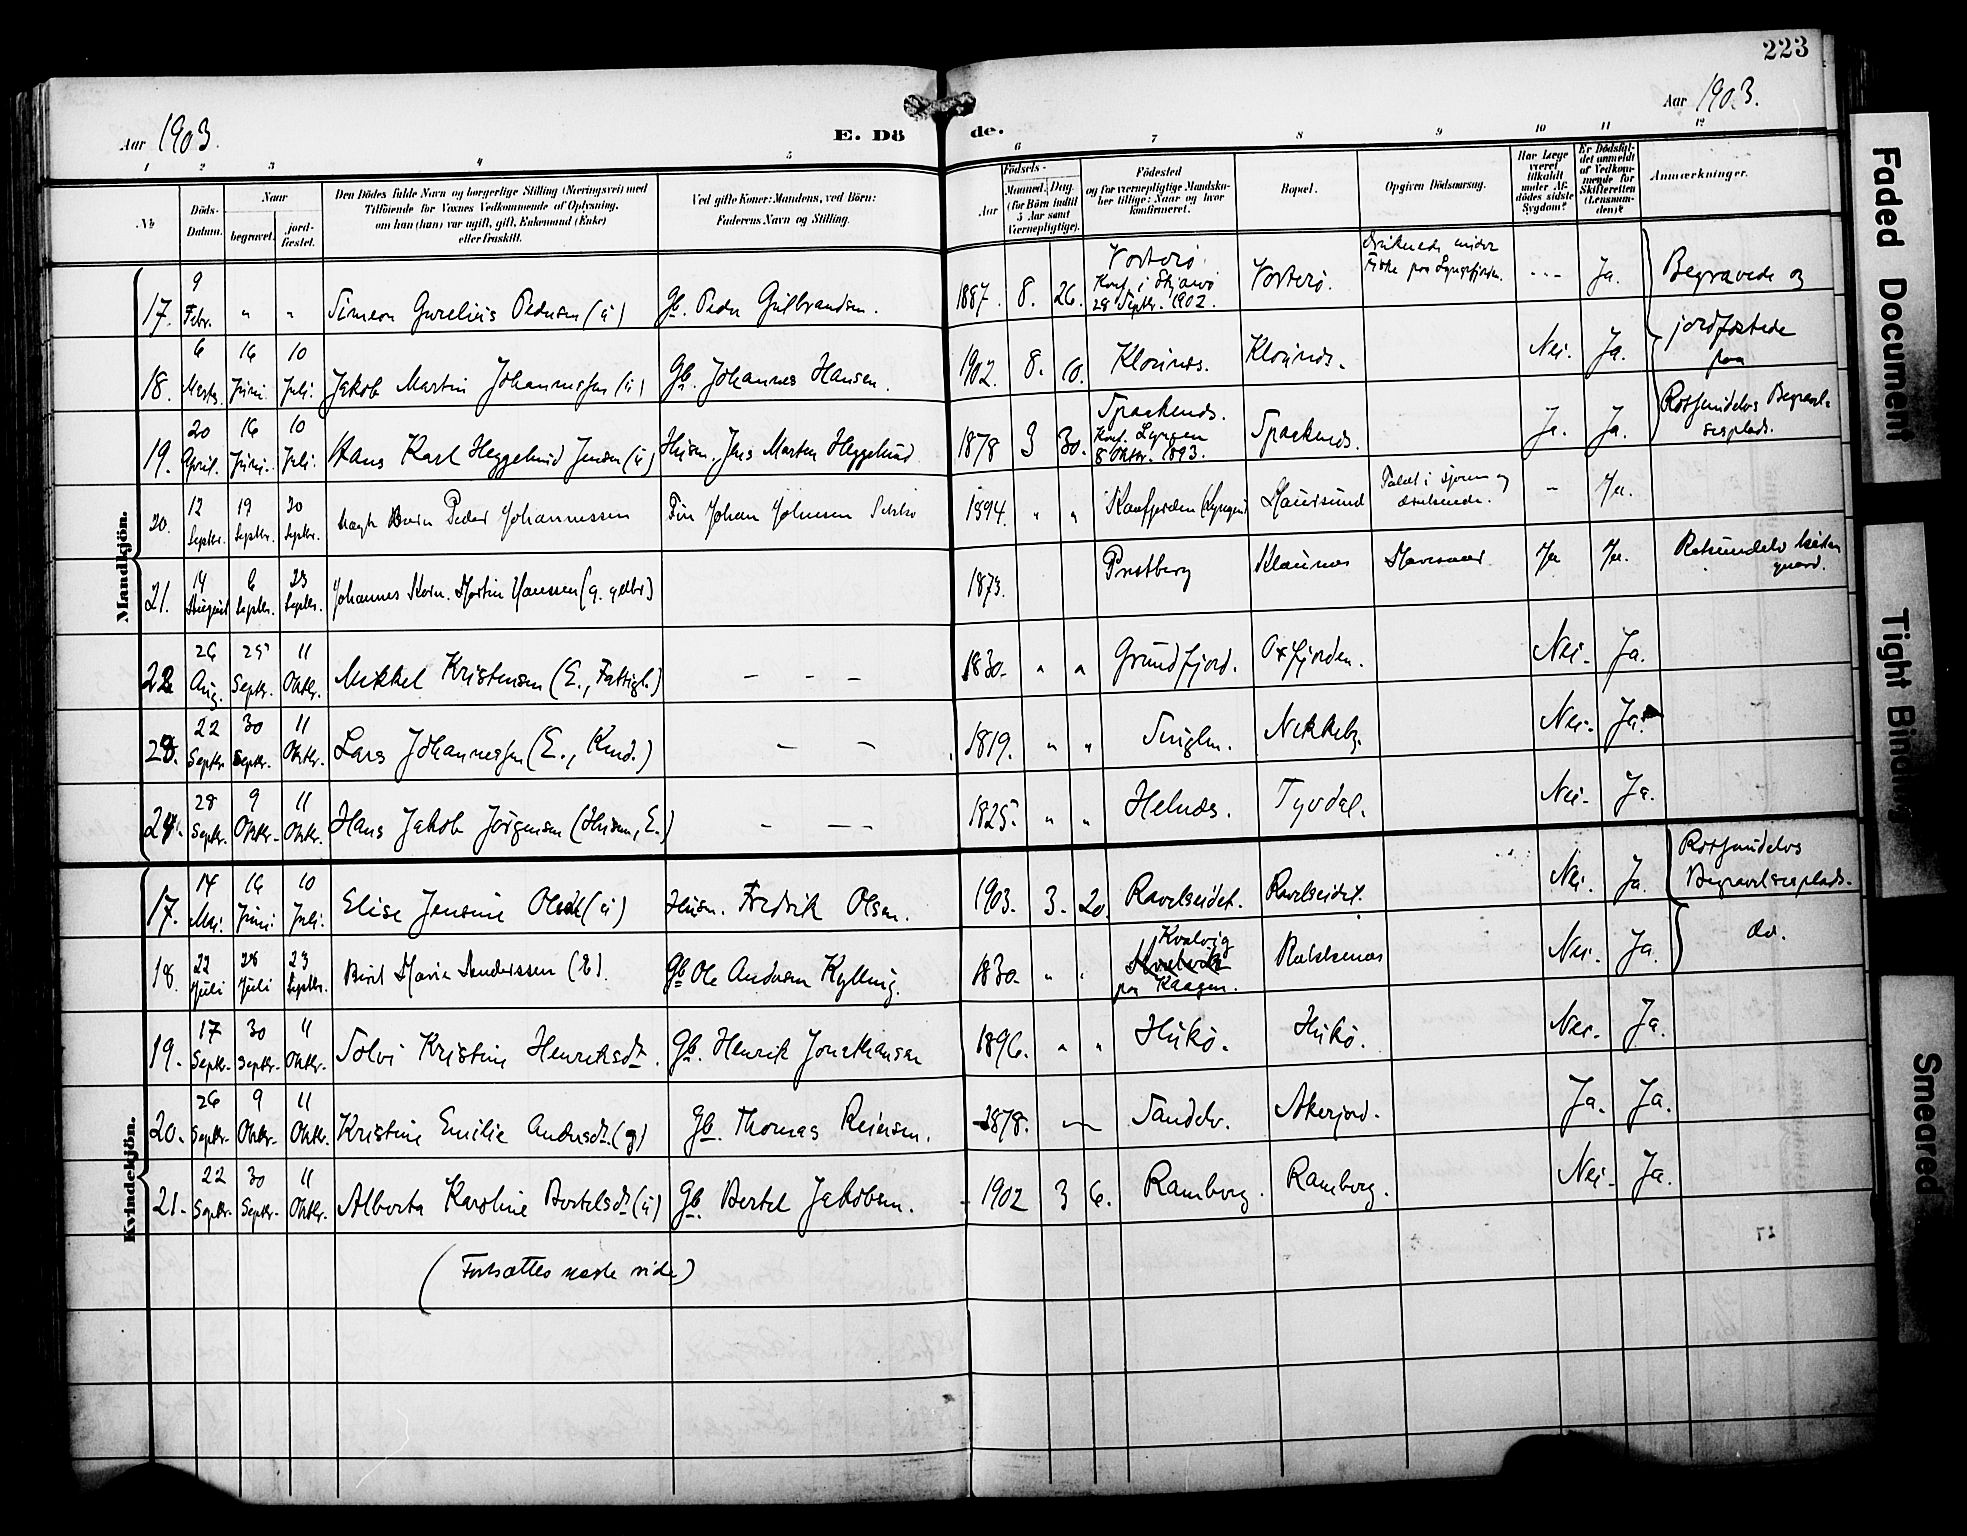 223
Aar 1903.
E. Dö
de.
Aar 1903.
1
2
3
4
5
6
7
8
9
10
11
12
No
Döds-
Datum.
Naar
begravet.
jord-
fæstet.
Den Dödes fulde Navn og borgerlige Stilling (Næringsvei) med
Tilföiende for Voxnes Vedkommende af Oplysning,
om han (hun) var ugift, gift, Enkemand (Enke)
eller fraskilt.
Ved gifte Koner: Mandens, ved Börn:
Faderens Navn og Stilling.
Födsels-
Aar
Maaned. Dag.
(for Börn indtil
5 Aar samt
Værnepligtige).
Födested
og for værnepligtige Mandska-
ber tillige: Naar og hvor
konfirmeret.
Bopæl.
Opgiven Dödsaarsag.
Har Læge
været
tilkaldt
under Af-
dödes sidste
Sygdom?
Er Dödsfal-
det anmeldt
af Vedkom-
mende for
Skifteretten
(Lensman-
den)?
Anmærkninger.
Mandkjön.
17. 9 Febr. " " Simeon Gurelius Pedersen (ú) Gb. Peder Gulbrandsen. 1887. 8. 26. Vorterö. Konf. i Skjærvö 28 Septr. 1902. Vorterö. Druknede under Fiske paa Lyngsfjorden. --- Ja. Begravede og
18. 6 Marts. 16 Juni. 10 Juli. Jakob Martin Johannessen (ú) Gb. Johannes Hansen. 1902. 8. 10. Klouines. Klouines. Nei. Ja. jordfæstede paa
19. 20 April. 16 Juni. 10 Juli. Hans Karl Heggelund Jensen (ú) Husm. Jens Morten Heggelund 1878 3 30. Spaakenes. Konf. Lyngen 8 Oktbr. 1893. Spaakenes. Ja. Ja. Rotsundelvs Begravel- sesplads.
20. 12 Septbr. 19 Septbr. 20 Septbr. Peder Johannessen Fin Johan Johnsen 1894. " " Kaafjorden (Lyngen) Maursund Faldt i sjøen og druknede. - Ja.
21. 14 August 6 Septbr. 23 Septbr. Johannes Martin Hanssen (g. gdbr) 1873. Prestberg Klauines Ja Ja. Rotsundelv
22. 26 Aug. 25 Septr. 11 Oktbr. Mikkel Kristensen (E., Fattigl.) - - - 1830. " " Grundfjord. Oxfjorden. Nei. Ja.
23. 22 Septbr. 30 Septbr. 11 Oktbr. Lars Johannessen (E., Kaud.) - - 1819. " " Nikkelby. Nei. Ja.
24. 28 Septbr. 9 Oktbr. 11 Oktbr. Hans Jakob Jörgensen (Husm, E.) - -- 1825. " " Helnes. Tyvdal. Nei. Ja.
Kvindekjön.
17. 14 Mai. 16 Juni. 10 Juli. Elise Jensine Olsdt (ú) Husm. Fredrik Olsen. 1903. 3. 20. Ravelseidet. Ravelseidet. Nei. Ja. Rotsundelvs Begravelsesplads.
18. 22 Juli 28 Juli 23 Septbr. Berit Maria (E). Gb. Ole Andersen Kylling. 1830. " " Kvalvig paa Kaagen. Rakkenes Nei. Ja. do.
19. 17 Septbr. 30 Septbr. 11 Oktbr. Solvi Kristine Henriksdt. Gb. Henrik Jonathansen 1896. " " Hukö. Hukö. Nei. Ja.
20. 26 Septbr. 9 Oktbr. 11 Oktbr. Kristine Emilie Andersdt. (g) Gb. Thomas Reiersen. 1878. Sandelv. Akerjord. Ja. Ja.
21. 22 Septbr. 30 Septbr. 11 Oktbr. Alberta Karoline Bertelsdt (ú) Gb. Bertel Jakobsen. 1902 3 6. Ramborg. Ramborg. Nei. Ja.
(Fortsættes næste side)
Faded Document
Tight Binding
Smeared